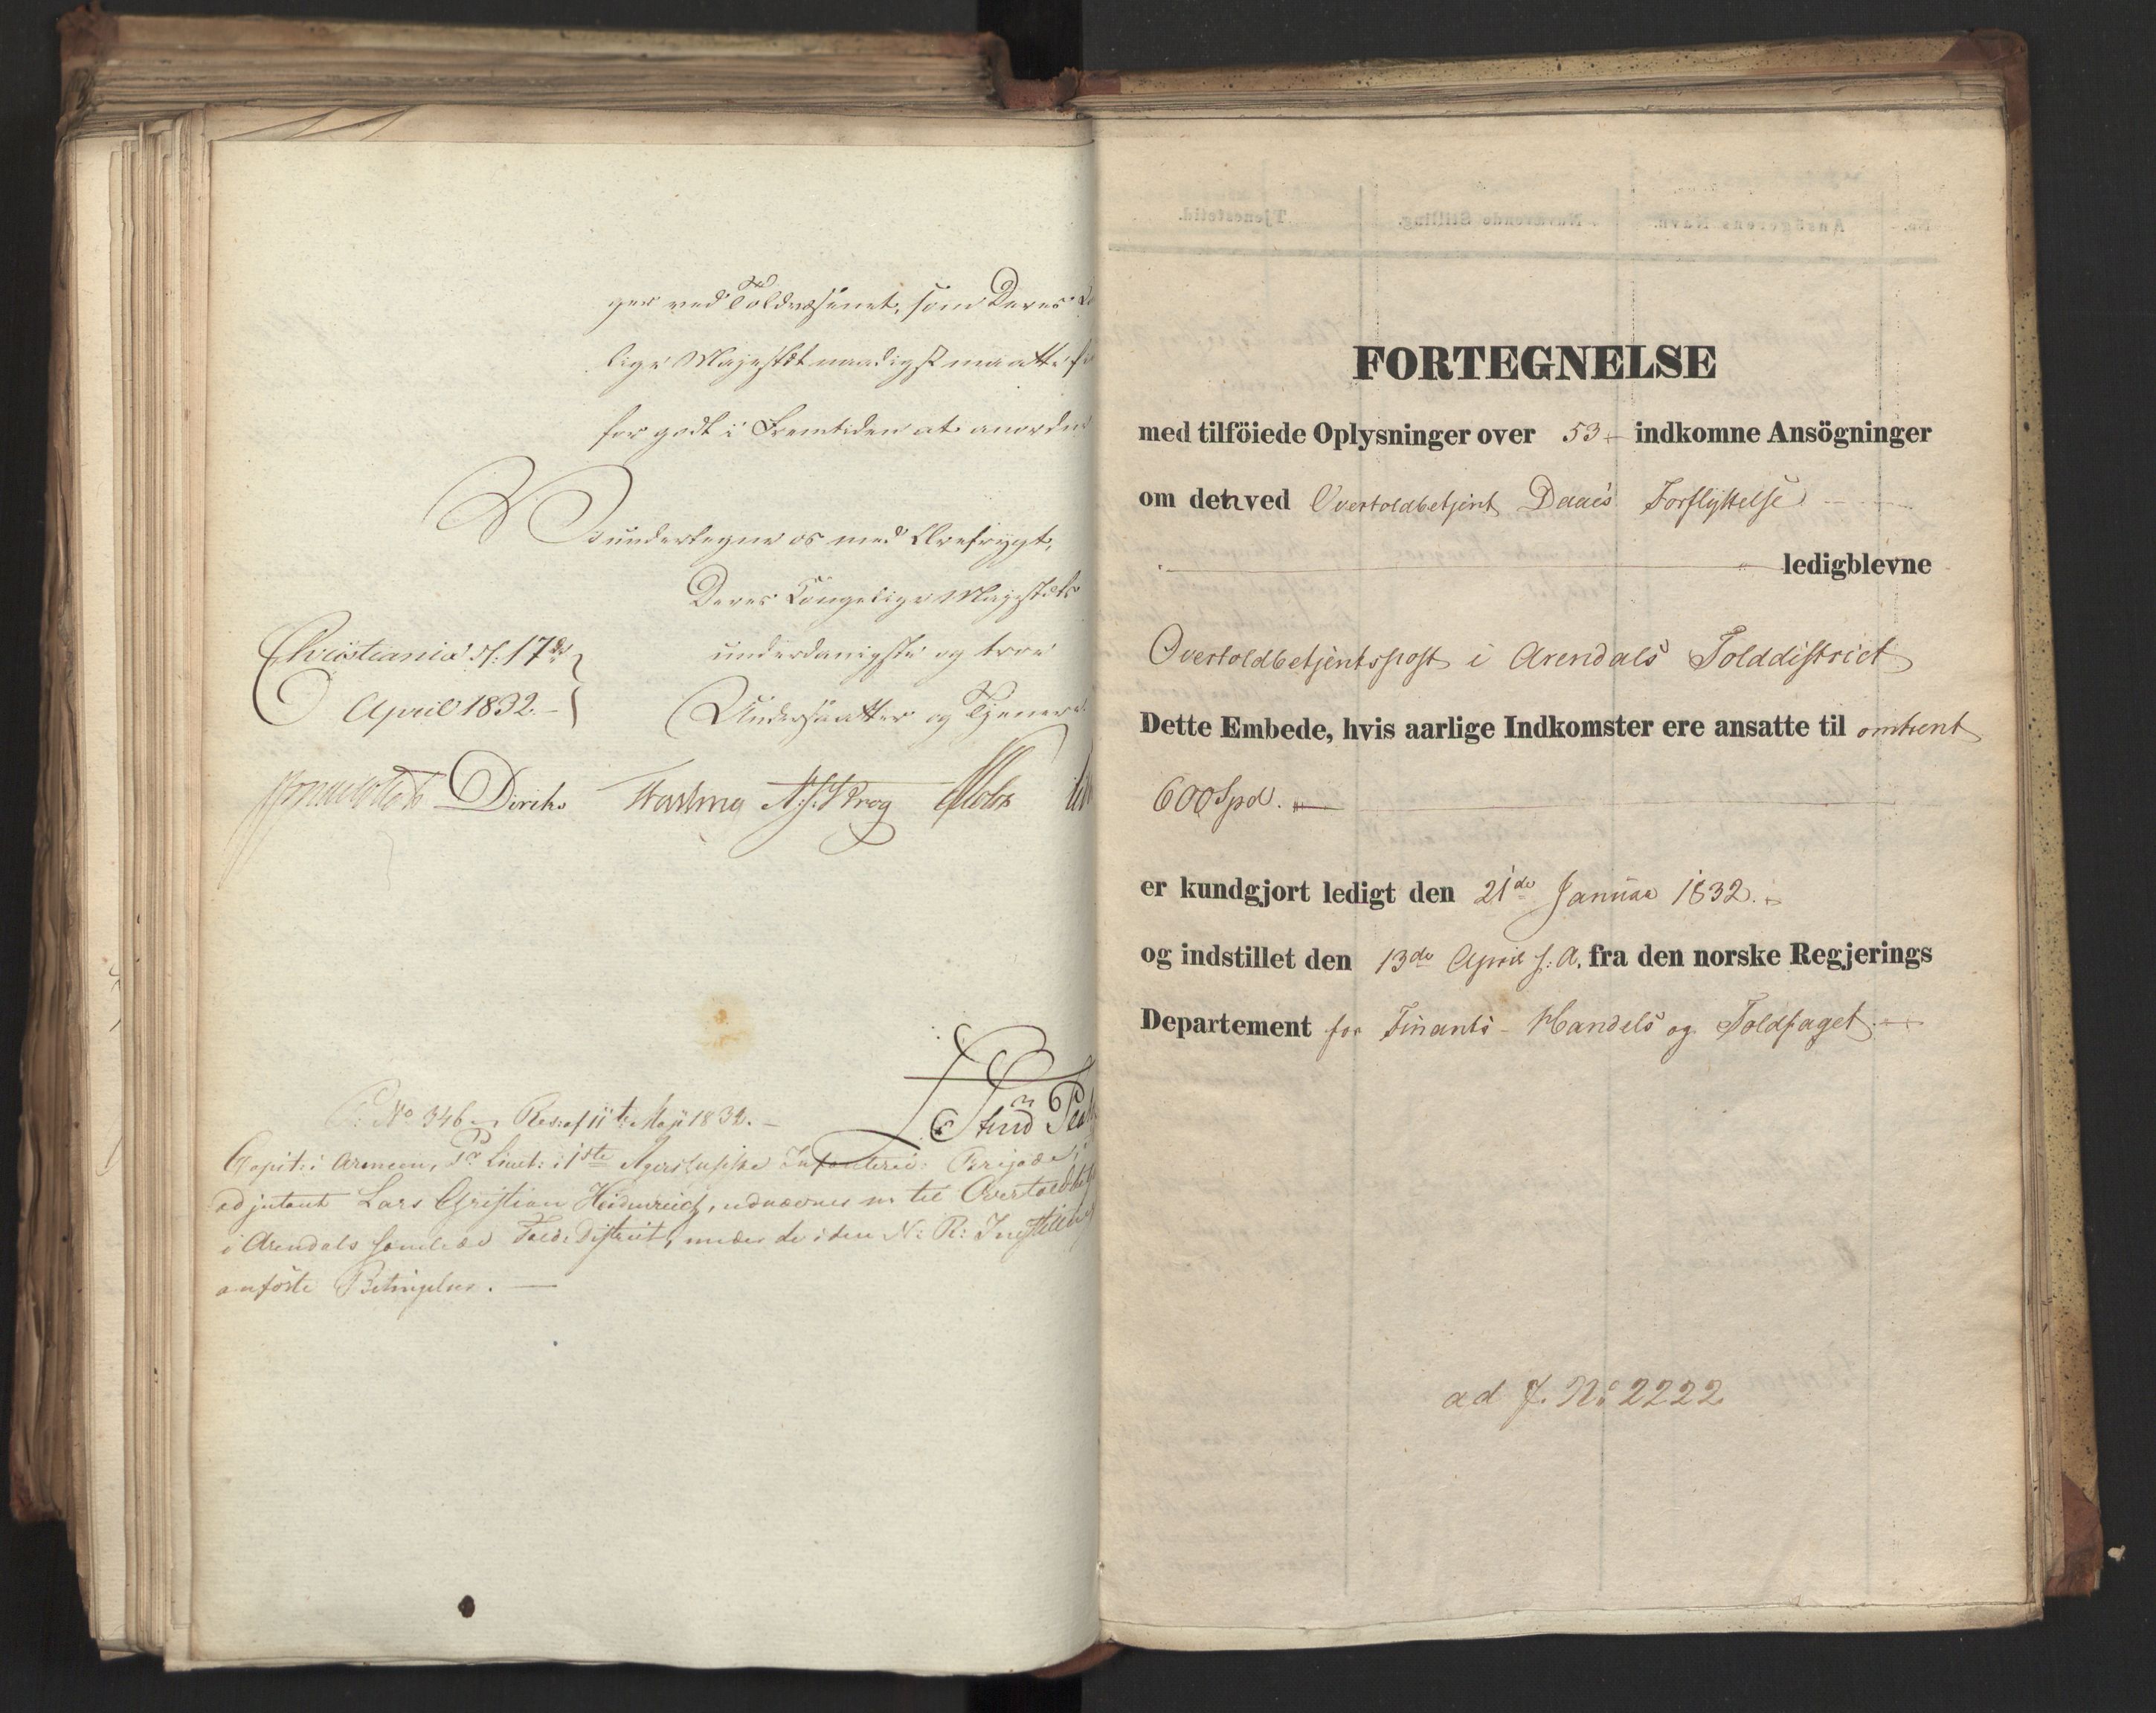 ger ved Toldvæsenet, som Deres
lige Majestæt naadigst maatte
for godt i Fremtiden at anordne
Vi undertegne os med Ærefrygt,
Deres Kongelige Majestæts
Christiania d. 17de
underdanigste og troe
April 1832.
Undersaatter og Tjenere
Diriks A. J. Krog
No 346 Res: af 11te Maji 1832.
Capit: i Armeen, Pr Lieut: i 1ste Agershusiske Infanterie Brigade,
adjutant Lars Christian Heidenreich, udnævnes til Overtoldbetj
i Arendals Told-District, under de i den N: R: Indstilling
anførte Betingelser.
No. Ansögerens Navn. Nærværende Stilling. Tjenestetid.
FORTEGNELSE
med tilföiede Oplysninger over 53 indkomne Ansögninger
om den ved Overtoldbetjent Daaes Forflyttelse
ledigblevne
Overtoldbetjentspost i Arendals Tolddistrict
Dette Embede, hvis aarlige Indkomster ere ansatte til omtrent
600 Spd.
er kundgjort ledigt den 21de Januar 1832.
og indstillet den 13de April s: A. fra den norske Regjerings
Departement for Finants- Handels og Toldfaget
ad J. No 2222